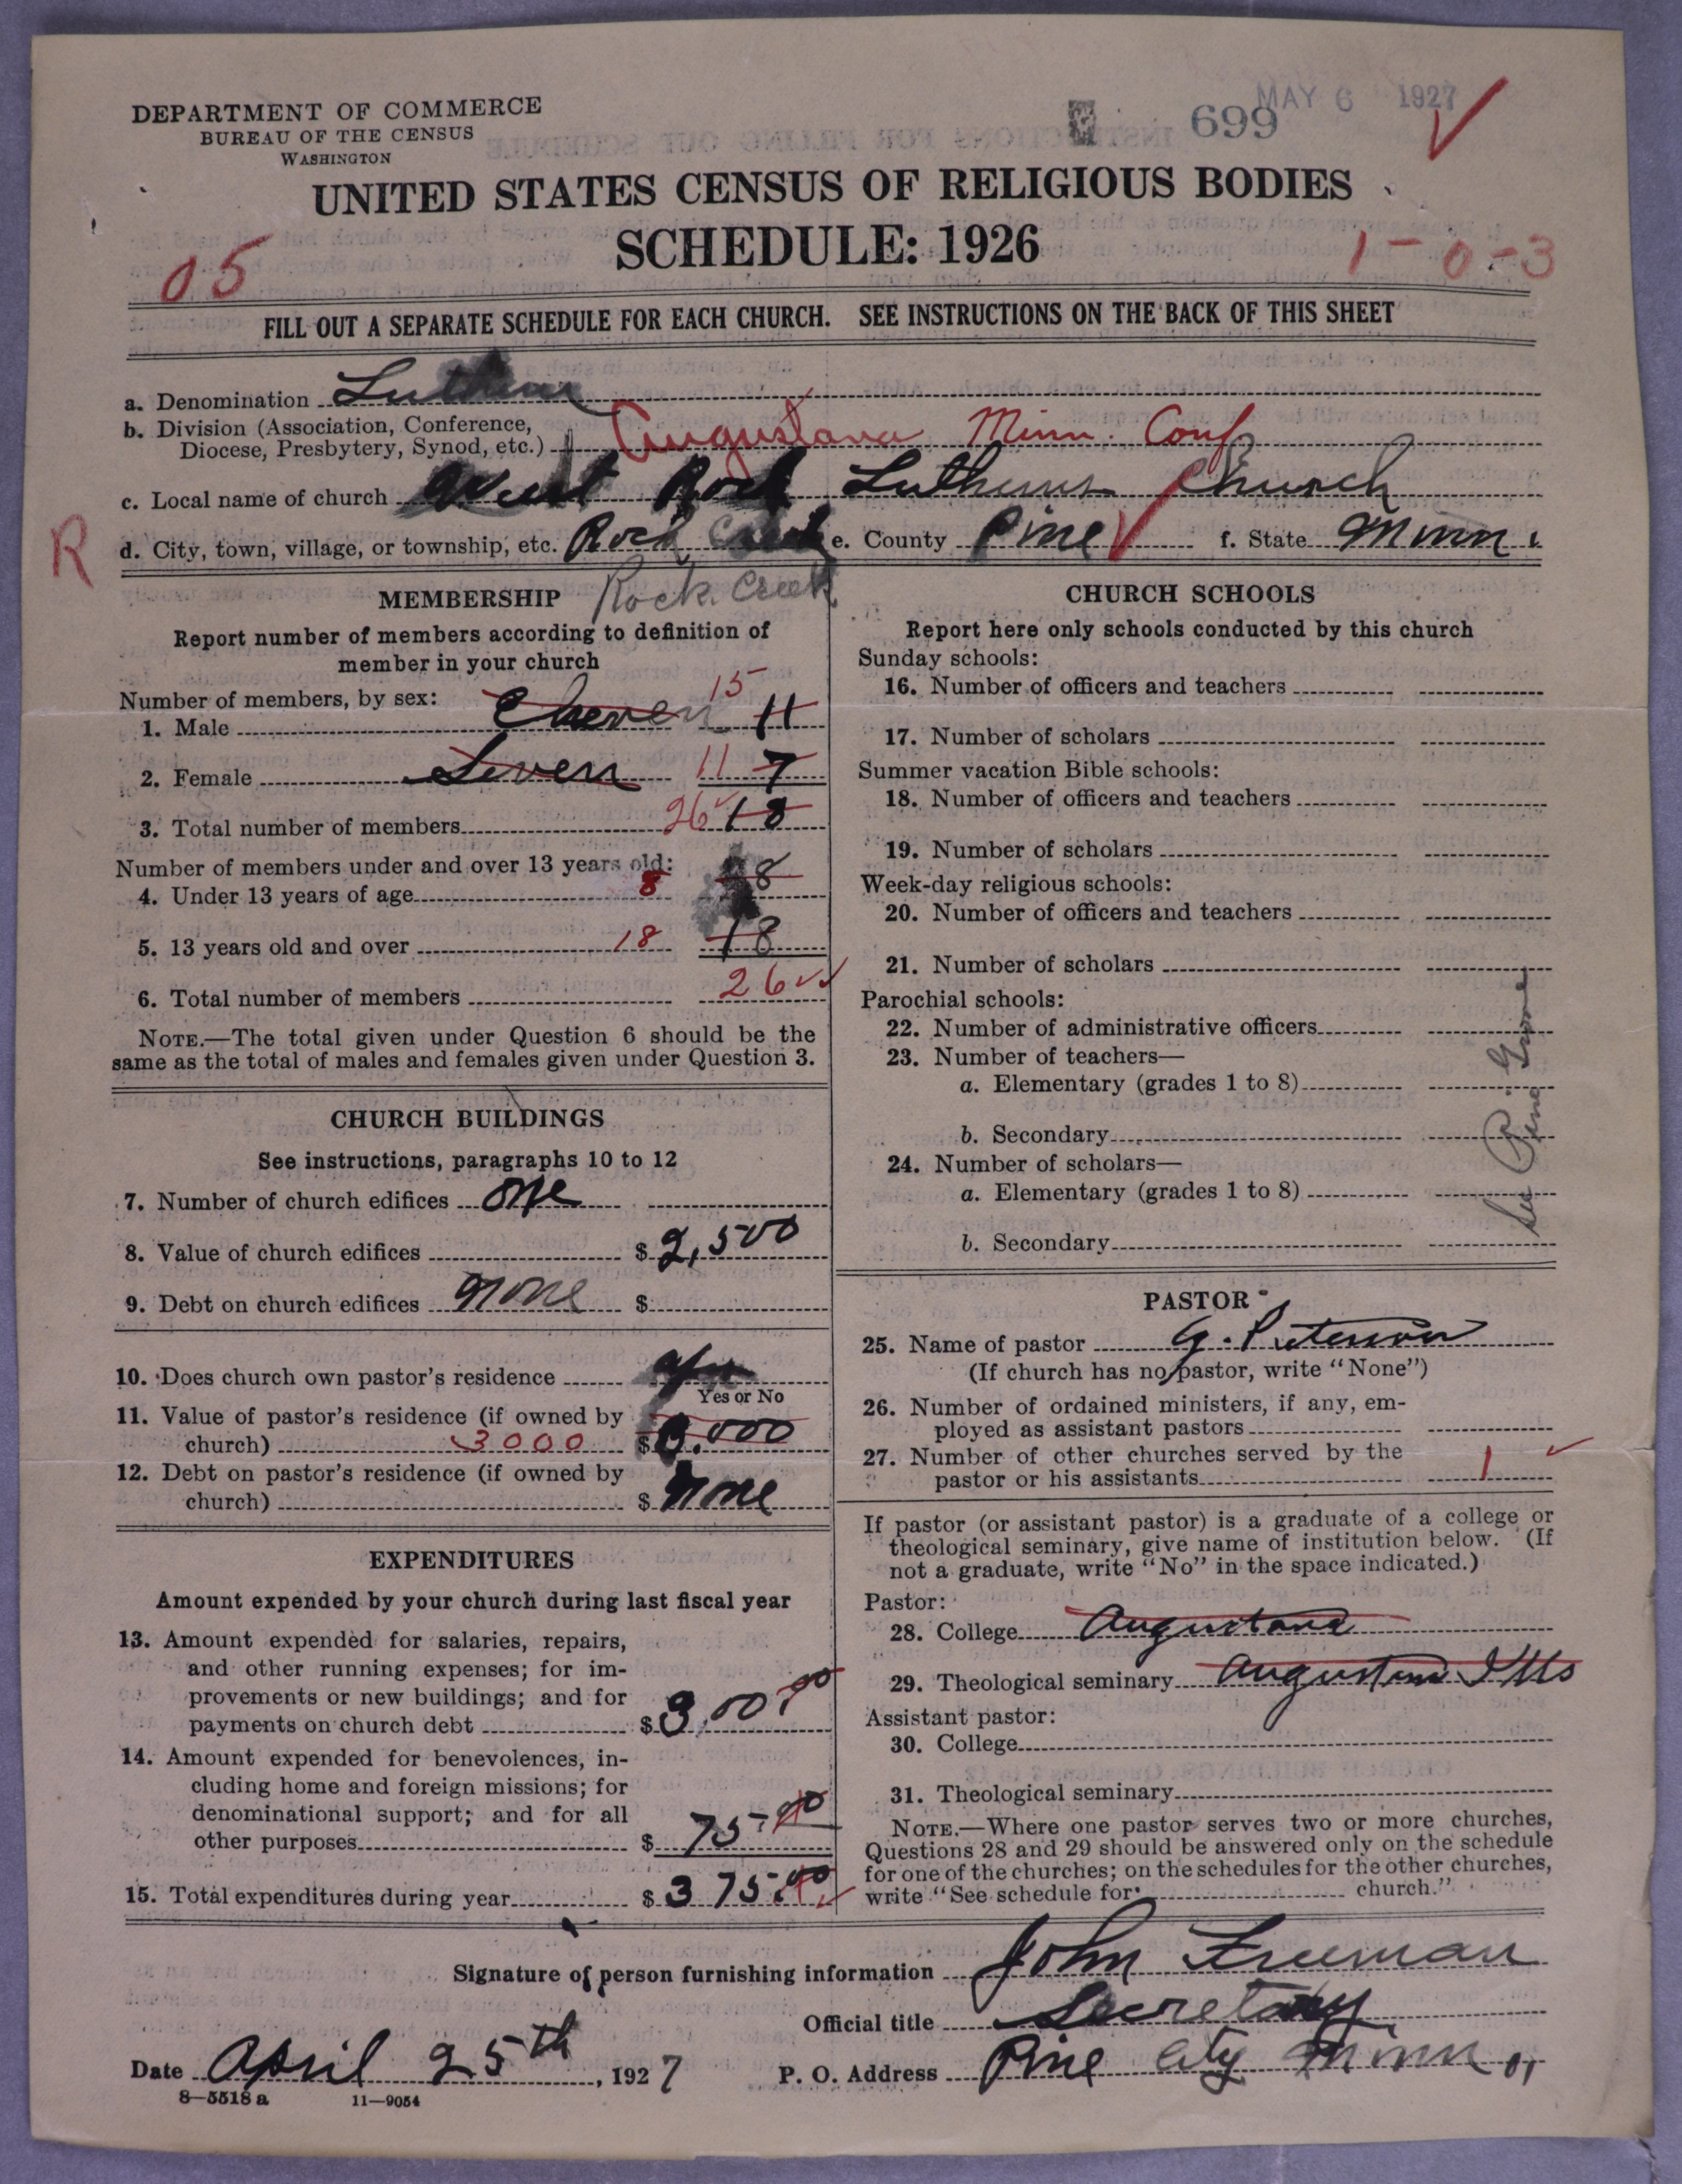 MAY 6 1927
699
DEPARTMENT OF COMMERCE
BUREAU OF THE CENSUS
WASHINGTON
UNITED STATES CENSUS OF RELIGIOUS BODIES
SCHEDULE: 1926
05
1-0-3
FILL OUT A SEPARATE SCHEDULE FOR EACH CHURCH. SEE INSTRUCTIONS ON THE BACK OF THIS SHEET
a. Denomination Lutheran
b. Division (Association, Conference,
Diocese, Presbytery, Synod, etc.) Augustana Minn. Conf
c. Local name of church West Rock Lutheran Church
R
d. City, town, village, or township, etc. Rock Creek e. County Pine f. State Minn
Rock Creek
MEMBERSHIP
Report number of members according to definition of
member in your church
Number of members, by sex:
1. Male Eleven 15 11
2. Female Seven 11 7
3. Total number of members 26 18
Number of members under and over 13 years old:
4. Under 13 years of age 8 8
5. 13 years old and over 18 18
6. Total number of members 26
NOTE.—The total given under Question 6 should be the
same as the total of males and females given under Question 3.
CHURCH BUILDINGS
See instructions, paragraphs 10 to 12
7. Number of church edifices one
8. Value of church edifices $ 2,500
9. Debt on church edifices None $
10. Does church own pastor's residence yes
Yes or No
11. Value of pastor's residence (if owned by
church) 3000 $ 3.000
12. Debt on pastor's residence (if owned by
church) $ None
EXPENDITURES
Amount expended by your church during last fiscal year
13. Amount expended for salaries, repairs,
and other running expenses; for im-
provements or new buildings; and for
payments on church debt $ 3,00 00
14. Amount expended for benevolences, in-
cluding home and foreign missions; for
denominational support; and for all
other purposes $ 75 00
15. Total expenditures during year $ 375.00
CHURCH SCHOOLS
Report here only schools conducted by this church
Sunday schools:
16. Number of officers and teachers
17. Number of scholars
Summer vacation Bible schools:
18. Number of officers and teachers
19. Number of scholars
Week-day religious schools:
20. Number of officers and teachers
21. Number of scholars
Parochial schools:
22. Number of administrative officers
23. Number of teachers—
a. Elementary (grades 1 to 8)
b. Secondary
24. Number of scholars—
a. Elementary (grades 1 to 8)
b. Secondary
See Pine Grove
PASTOR
25. Name of pastor G. Peterson
(If church has no pastor, write "None")
26. Number of ordained ministers, if any, em-
ployed as assistant pastors
27. Number of other churches served by the
pastor or his assistants 1
If pastor (or assistant pastor) is a graduate of a college or
theological seminary, give name of institution below. (If
not a graduate, write "No" in the space indicated.)
Pastor:
28. College Augustana
29. Theological seminary Augustana Ills
Assistant pastor:
30. College
31. Theological seminary
NOTE.—Where one pastor serves two or more churches,
Questions 28 and 29 should be answered only on the schedule
for one of the churches; on the schedules for the other churches,
write "See schedule for church."
Signature of person furnishing information John Freeman
Official title Secretary
Date April 25th, 1927 P. O. Address Pine City Minn
8—5518 a 11—9054